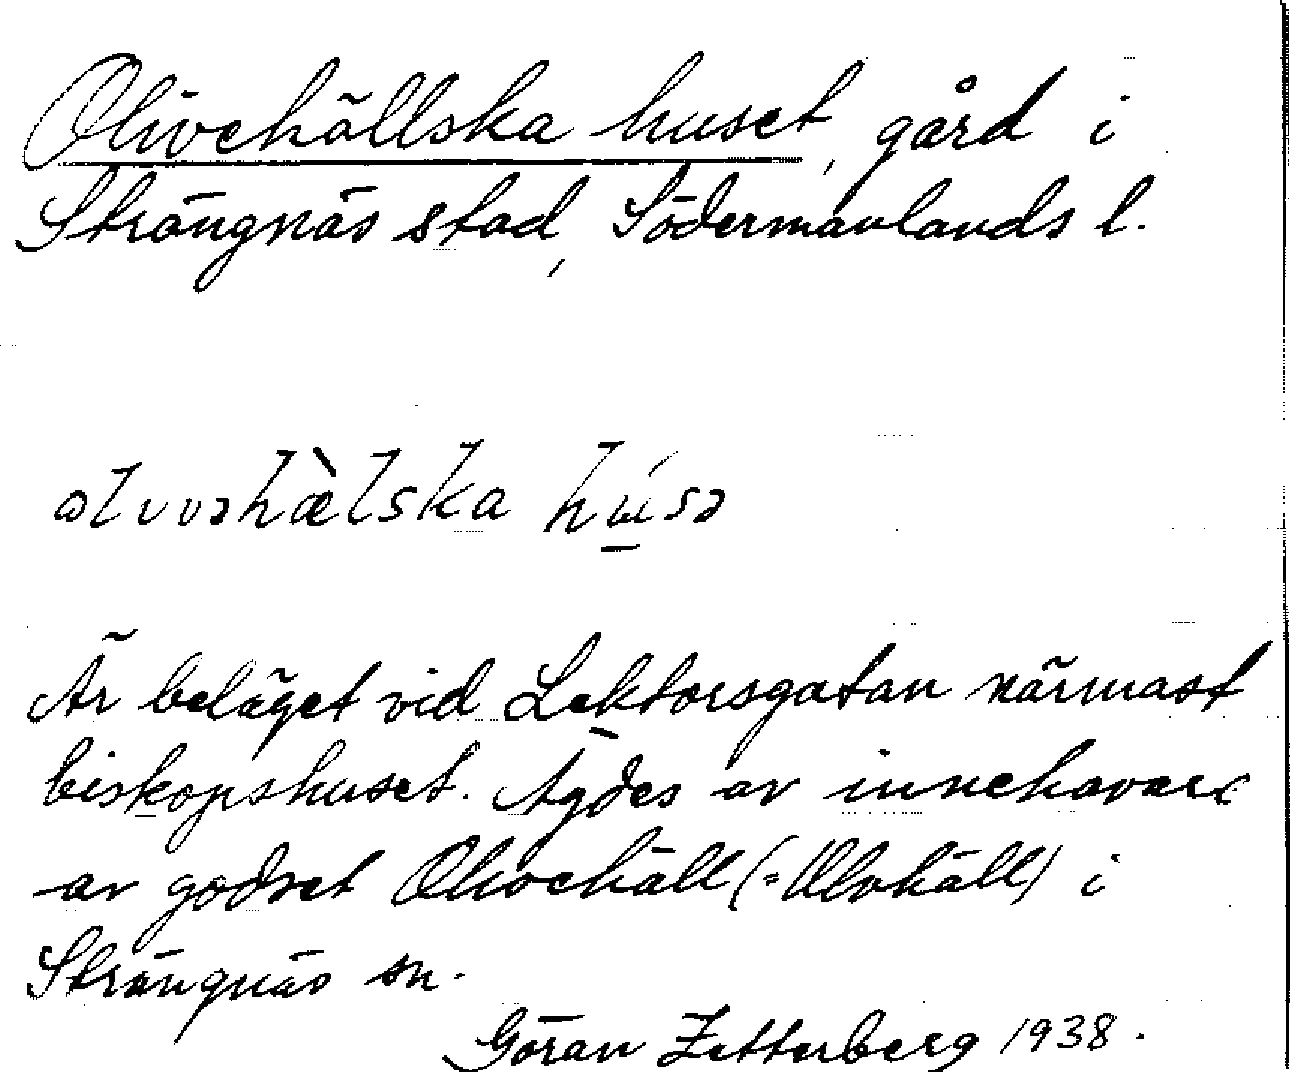 Olivehällska huset, gård i
Strängnäs stad, Södermanlands l.
hùsə
Är beläget vid Lektorsgatan närmast
biskopshuset. Ägdes av innehavare
av godset Olivehäll (= Ulvhäll) i
Strängnäs sn.
Göran Zetterberg 1938.